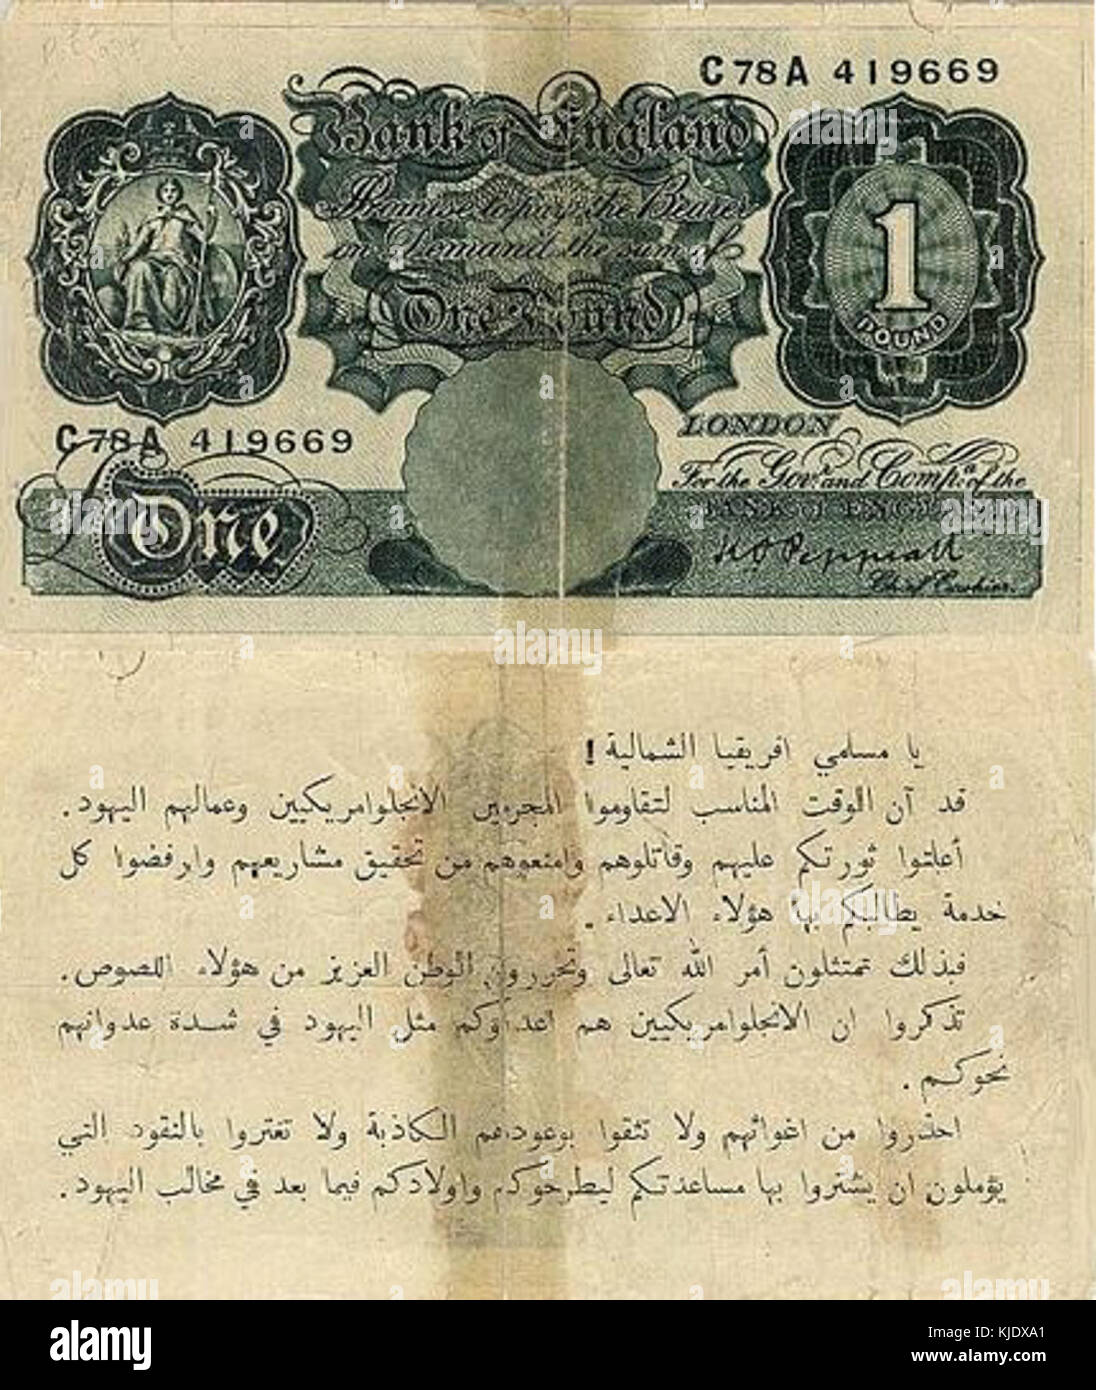 C78A 419669
Bank of England
I Promise to pay the Bearer
on Demand the sum of
One Pound
1
POUND
C78A 419669
LONDON
For the Govr. and Compa. of the
BANK OF ENGLAND
One
K O Peppiatt
Chief Cashier.
يا مسلمي افريقيا الشمالية !
قد آن الوقت المناسب لتقاوموا المجرمين الانجلوامريكيين وعمالهم اليهود.
أعلنوا ثورتكم عليهم وقاتلوهم وامنعوهم من تحقيق مشاريعهم وارفضوا كل
خدمة يطالبكم بها هؤلاء الاعداء .
فبذلك تمتثلون أمر الله تعالى وتحررون الوطن العزيز من هؤلاء اللصوص.
تذكروا ان الانجلوامريكيين هم اعداؤكم مثل اليهود في شدة عدوانهم
نحوكم .
احذروا من اغوائهم ولا تثقوا بوعودهم الكاذبة ولا تغتروا بالنقود التي
يؤملون ان يشتروا بها مساعدتكم ليطرحوكم واولادكم فيما بعد في مخالب اليهود.
alamy
Image ID: KJDXA1
www.alamy.com